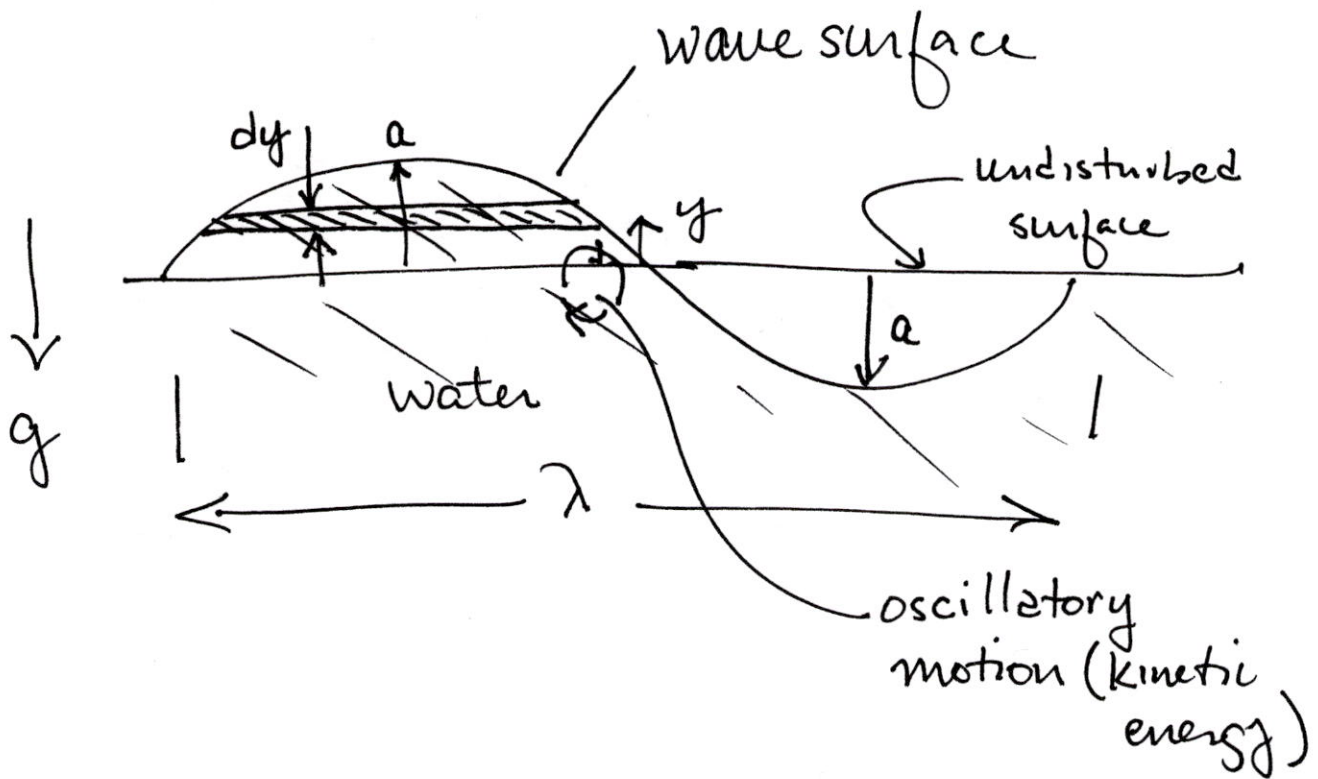 wave surface
dy
a
undisturbed
surface
y
a
g
water
λ
oscillatory
motion (kinetic
energy)